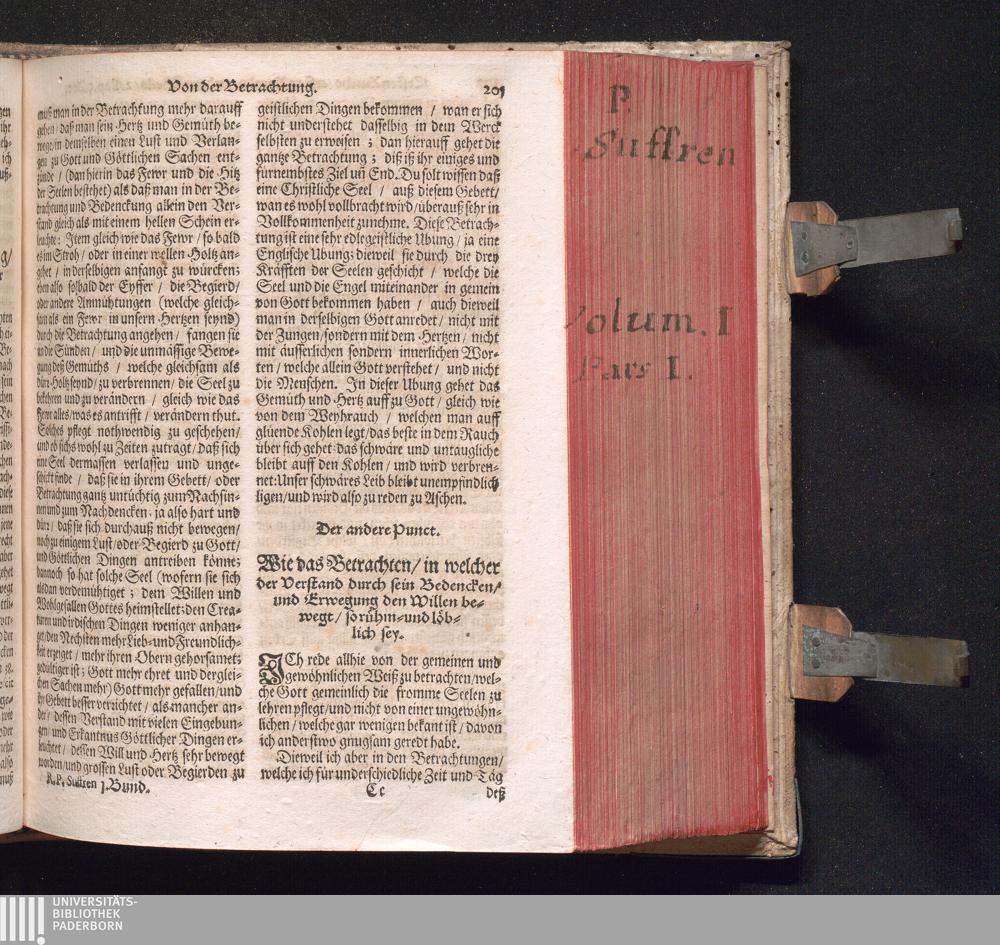 Von der Betrachtung. 201
muß man in der Betrachtung mehr darauff
gehen / daß man sein Hertz und Gemüth be-
wege / in demselben einen Lust und Verlan-
gen zu Gott und Göttlichen Sachen ent-
zünde / (dan hierin das Fewr und die Hitz
der Seelen bestehet) als daß man in der Be-
trachtung und Bedenckung allein den Ver-
stand gleich als mit einem hellen Schein er-
leuchte: Item gleich wie das Fewr / so bald
es im Stroh / oder in einer wellen Holtz an-
gehet / in derselbigen anfangt zu würcken;
eben also so bald der Eyffer / die Begierd /
oder andere Anmühtungen (welche gleich-
sam als ein Fewr in unsern Hertzen seynd)
durch die Betrachtung angehen / fangen sie
an die Sünden / und die unmässige Bewe-
gung deß Gemüths / welche gleichsam als
dürr Holtz seynd / zu verbrennen / die Seel zu
bekehren und zu verändern / gleich wie das
Fewr alles / was es antrifft / verändern thut.
Solches pflegt nothwendig zu geschehen /
und ob sichs wohl zu Zeiten zutragt / daß sich
eine Seel dermassen verlassen und unge-
schickt finde / daß sie in ihrem Gebett / oder
Betrachtung gantz untüchtig zum Nachsin-
nen und zum Nachdencken, ja also hart und
dürr / daß sie sich durchauß nicht bewegen /
noch zu einigem Lust / oder Begierd zu Gott /
und Göttlichen Dingen antreiben könne;
dannoch so hat solche Seel (wofern sie sich
alsdan verdemühtiget; dem Willen und
Wohlgefallen Gottes heimstellet: den Crea-
turen und irdischen Dingen weniger anhan-
get / den Nechsten mehr Lieb- und Freundlich-
keit erzeiget / mehr ihren Obern gehorsamet;
gedultiger ist; Gott mehr ehret und derglei-
chen Sachen mehr) Gott mehr gefallen / und
ihr Gebett besser verrichtet / als mancher an-
der / dessen Verstand mit vielen Eingebun-
gen / und Erkantnus Göttlicher Dingen er-
leuchtet / dessen Will und Hertz sehr bewegt
worden / und grossen Lust oder Begierden zu
R. P. Suffren 1. Bund.
geistlichen Dingen bekommen / wan er sich
nicht understehet dasselbig in dem Werck
selbsten zu erweisen; dan hierauff gehet die
gantze Betrachtung; diß ist ihr einiges und
furnembstes Ziel uñ End. Du solt wissen daß
eine Christliche Seel / auß diesem Gebett /
wan es wohl vollbracht wird / überauß sehr in
Vollkommenheit zunehme. Diese Betrach-
tung ist eine sehr edle geistliche Ubung / ja eine
Englische Ubung; dieweil sie durch die drey
Kräfften der Seelen geschicht / welche die
Seel und die Engel miteinander in gemein
von Gott bekommen haben / auch dieweil
man in derselbigen Gott anredet / nicht mit
der Zungen / sondern mit dem Hertzen / nicht
mit äusserlichen sondern innerlichen Wor-
ten / welche allein Gott verstehet / und nicht
die Menschen. In dieser Ubung gehet das
Gemüth und Hertz auff zu Gott / gleich wie
von dem Weyhrauch / welchen man auff
glüende Kohlen legt / das beste in dem Rauch
über sich gehet das schwäre und untaugliche
bleibt auff den Kohlen / und wird verbren-
net: Unser schwäres Leib bleibt unempfindlich
ligen / und wird also zu reden zu Aschen.
Der andere Punct.
Wie das Betrachten / in welcher
der Verstand durch sein Bedencken /
und Erwegung den Willen be-
wegt / so rühm- und löb-
lich sey.
ICh rede allhie von der gemeinen und
gewöhnlichen Weiß zu betrachten / wel-
che Gott gemeinlich die fromme Seelen zu
lehren pflegt / und nicht von einer ungewöhn-
lichen / welche gar wenigen bekant ist / davon
ich anderstwo gnugsam geredt habe.
Dieweil ich aber in den Betrachtungen /
welche ich für underschiedliche Zeit und Täg
Cc deß
P.
Suffren
Volum. I
Pars I.
UNIVERSITÄTS-
BIBLIOTHEK
PADERBORN